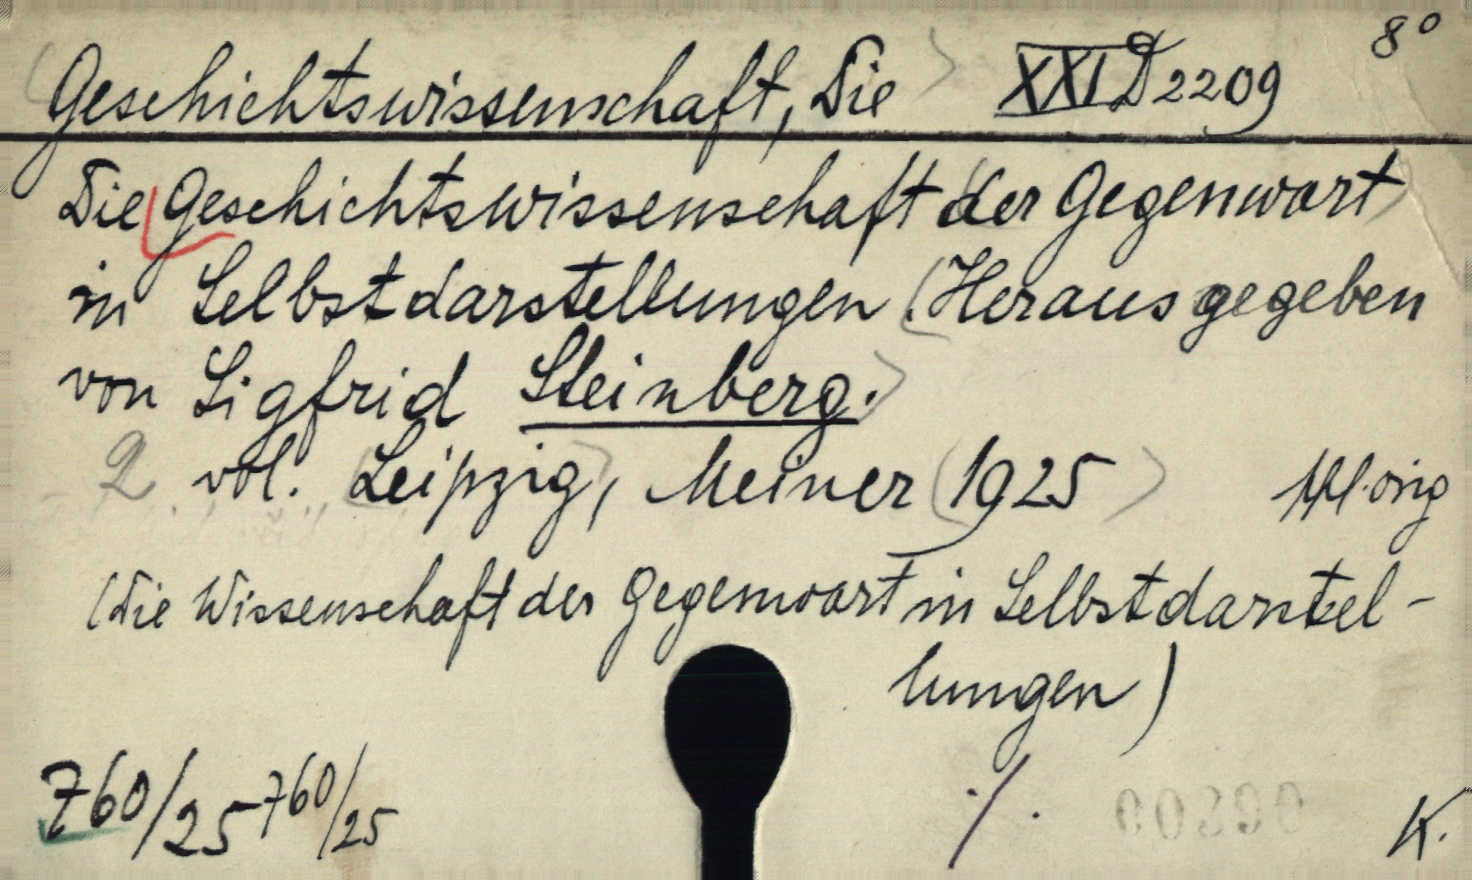 8°
(Geschichtswissenschaft, Die) XXI D 2209
Die Geschichtswissenschaft (der Gegenwart)
in Selbstdarstellungen. (Herausgegeben
von Sigfrid Steinberg.)
2 vol. (Leipzig), Meiner (1925)
(Die Wissenschaft der Gegenwart in Selbstdarstel-
lungen)
760/25 760/25 ./. K.